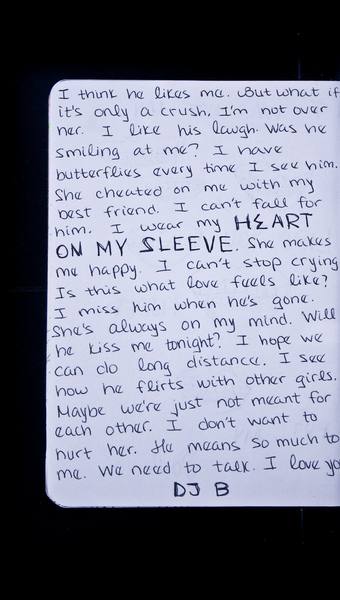 I think he likes me. But what if
it's only a crush. I'm not over
her. I like his laugh. Was he
smiling at me? I have
butterflies every time I see him.
She cheated on me with my
best friend. I can't fall for
him. I wear my HEART
ON MY SLEEVE. She makes
me happy. I can't stop crying
Is this what love feels like?
I miss him when he's gone.
She's always on my mind. Will
he kiss me tonight? I hope we
can do long distance. I see
how he flirts with other girls.
Maybe we're just not meant for
each other. I don't want to
hurt her. He means so much to
me. We need to talk. I love yo
DJ B